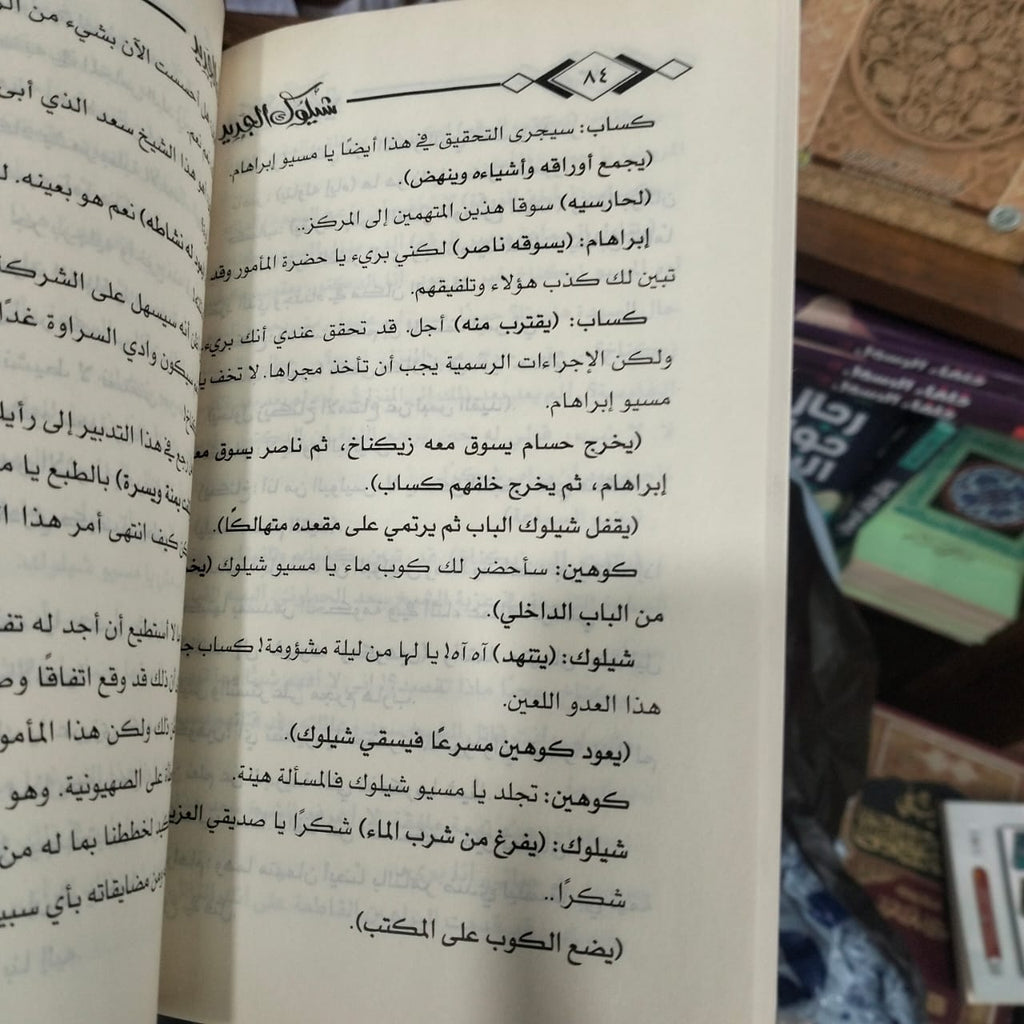 ٨٤
شيلوك الجديد
كساب: سيجرى التحقيق في هذا أيضًا يا مسيو إبراهام.
(يجمع أوراقه وأشياءه وينهض).
(لحارسيه) سوقا هذين المتهمين إلى المركز..
إبراهام: (يسوقه ناصر) لكني بريء يا حضرة المأمور وقد
تبين لك كذب هؤلاء وتلفيقهم.
كساب: (يقترب منه) أجل. قد تحقق عندي أنك بريء
ولكن الإجراءات الرسمية يجب أن تأخذ مجراها. لا تخف يا
مسيو إبراهام.
(يخرج حسام يسوق معه زيكناخ، ثم ناصر يسوق معه
إبراهام، ثم يخرج خلفهم كساب).
(يقفل شيلوك الباب ثم يرتمي على مقعده متهالكًا).
كوهين: سأحضر لك كوب ماء يا مسيو شيلوك
من الباب الداخلي).
شيلوك: (يتنهد) آه آه! يا لها من ليلة مشؤومة! كساب
هذا العدو اللعين.
(يعود كوهين مسرعًا فيسقي شيلوك).
كوهين: تجلد يا مسيو شيلوك فالمسألة هينة.
شيلوك: (يفرغ من شرب الماء) شكرًا يا صديقي العزيز
شكرًا..
(يضع الكوب على المكتب).
أحسست الآن بشيء من
نعم.
هذا الشيخ سعد الذي أبى
له نشاطه) نعم هو بعينه.
أنه سيسهل على الشركة
وادي السراوة غدًا
في هذا التدبير إلى رأيك
يمنة ويسرة) بالطبع يا
كيف انتهى أمر هذا
لا أستطيع أن أجد له
ذلك قد وقع اتفاقًا
ولكن هذا المأمور
على الصهيونية. وهو
لخططنا بما له من
من مضايقاته بأي
رجال